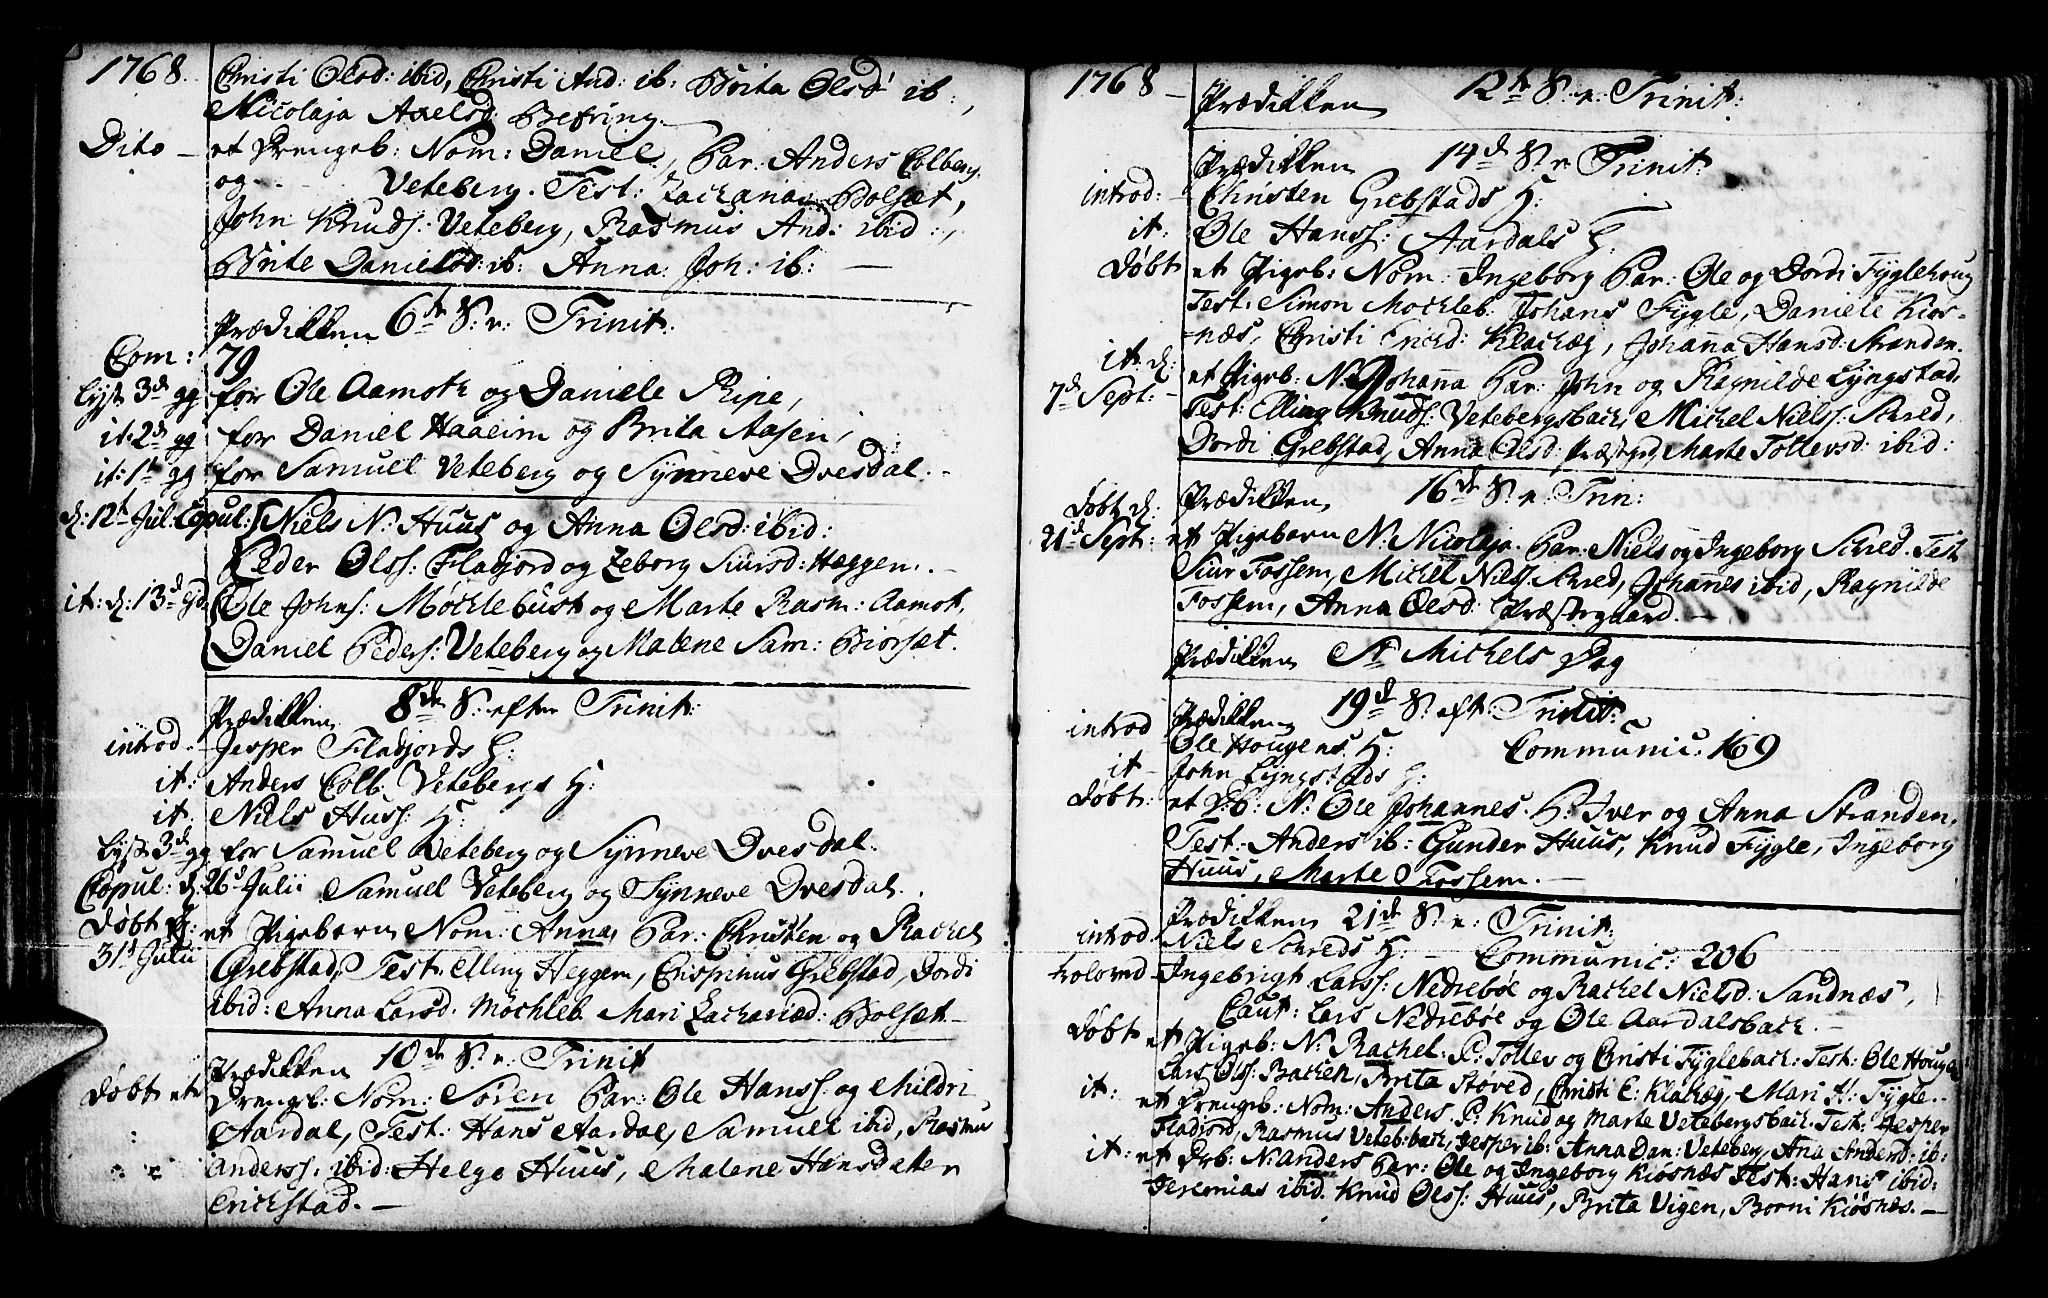 1768. Christi Olsd: ibid, Christi And: ib: Brita Olsd ib:,
Nicolaja Axelsd: Befring.
Dito – et Drengeb: Nom: Daniel, Par: Anders Colberg.
og Veteberg. Test: Zacharias Bolsæt,
John Knuds: Veteberg, Rasmus And: ibid:,
Brite Danielsd: ib: Anna: Joh: ib: —
Prædikken 6te S: e: Trinit:
Com: 79
Lyst 3de gg for Ole Aamoth og Daniele Ripe,
it: 2de gg for Daniel Haaeim og Brita Aasen,
it: 1te gg for Samuel Veteberg og Synneve Dvesdal.
d: 12te Jul: Copul: Niels N: Huus og Anna Olsd: ibid:
Peder Olss: Fladjord og Zeborg Siursd: Heggen.
it: d: 13de Ejd: Ole Johns: Möchlebust og Marte Rasm: Aamot,
Daniel Peders: Veteberg og Malene Sam: Biorsæt.
Prædikken 8de S: efter Trinit:
introd: Jesper Fladjords H:
it: Anders Colb: Vetebergs H:
it: Niels Huss: H:
Lyst 3de gg for Samuel Veteberg og Synneve Dvesdal.
Copul: d: 26d Julii Samuel Veteberg og Synneve Dvesdal.
Döbt d: et Pigebarn Nom: Anna, Par: Christen og Rachel
31d Julii Grebstad, Test: Elling Heggem, Chisprinus Grebstad, Dordi
ibid: Anna Larsd: Möchleb: Mari Zachariæd: Bolsæt –
Prædikken 10de S: e: Trinit
Döbt et Drengb: Nom: Sören Par: Ole Hanss: og Mildri
Aardal, Test: Hans Aardal, Samuel ibid, Rasmus
Anderss: ibid: Helge Huus, Malene Hansdatter
Erichstad. –
1768 – Prædikken 12te S: e: Trinit:
Prædikken 14de S: e: Trinit:
introd: Christen Grebstads H:
it: Ole Hanss: Aardals H:
Döbt et Pigeb: Nom: Ingeborg Par: Ole og Dordi Fyglehoug
Test: Simon Mochleb: Johans Fygle, Daniele Kios-
-næs, Christi Erichd: Klachæg, Johanna Hansd: Stranden.
it: d: 7d Sept: – et Pigeb: N: Johanna Par: John og Ragnilde Lyngstad,
Test: Elling Knuds: Vetebergsbach, Michel Nielss: Schred,
Dordi Grebstad, Anna Olsd: Præstegrd, Marte Tollevsd: ibid:
Prædikken 16de S: e: Trin:
Döbt d: 21d Sept: et Pigebarn N: Nicolaja. Par: Niels og Ingeborg Schred. Test
Siur Fossem, Michel Niels: Schred, Johannes ibid, Ragnilde
Fossem, Anna Olsd: Præstegaard. –
Prædikken St Michels Dag
Prædikken 19de S: eft: Trinit:
introd Ole Hougens H: Communic: 169
it – John Lyngstads H:
Döbt: et Db: N: Ole Johannes. P: Iver og Anna Stranden,
Test: Anders ib: Gunder Huus, Knud Fygle, Ingeborg
Huus, Marte Fossem. –
Prædikken 21de S: e: Trinit:
introd Niels Schreds H: – Communic: 206
trolovd – Ingebrigt Larss: Nedrebøe og Rachel Nielsd: Sandnæs,
Caut: Lars Nedrebøe og Ole Aardalsbach. –
Döbt et Pigeb: N: Rachel: P: Tollev og Christi Fyglebach: Test: Ole Hougen
Lars Ols: Bachen, Brita Støved, Christi E: Klachæg, Mari H: Fygle. –
it: et Drengeb: Nom: Anders. P: Knud og Marte Vetebergsbach. Test: Jesper
Fladjord, Rasmus Veteb:bach, Jesper ib: Anna Dan: Veteberg, Ana Andersd: ib:
it: et Drb: N: Anders Par: Ole og Ingeborg Kiosnæs Test: Hans ibid:
Jeremias ibid. Knud Olss: Huus, Brita Vigen, Borni Kiösnæs. –